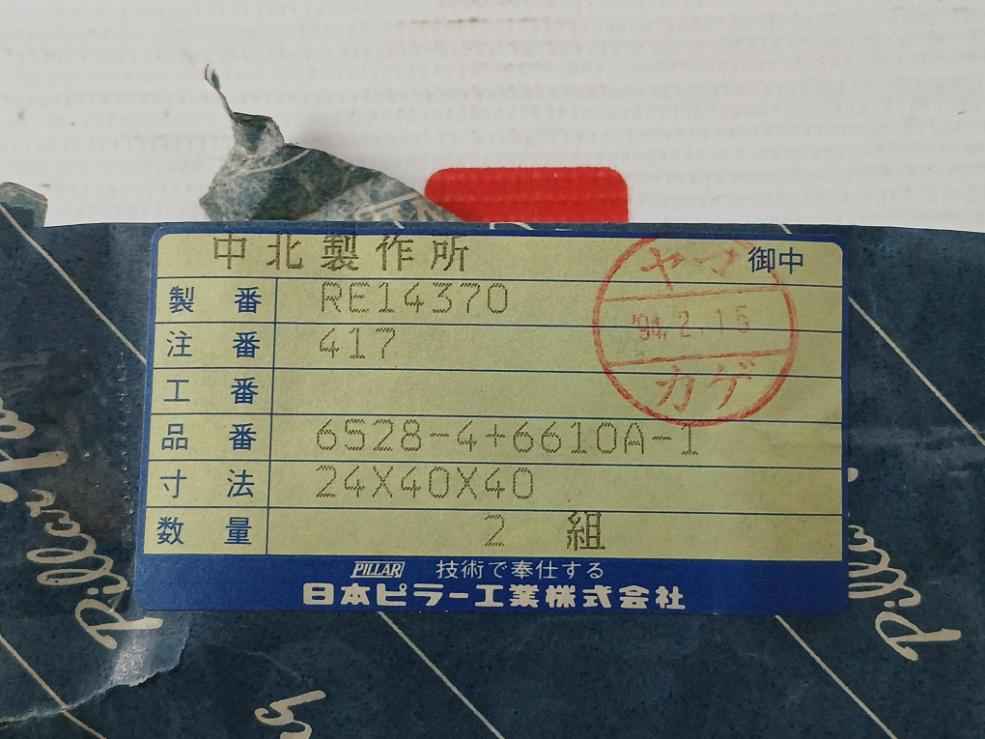 中北製作所 御中
ヤマ
'94.2.15
カゲ
製番 RE14370
注番 417
工番
品番 6528-4+6610A-1
寸法 24X40X40
数量 2 組
PILLAR 技術で奉仕する
日本ピラー工業株式会社
Pillar
Pillar